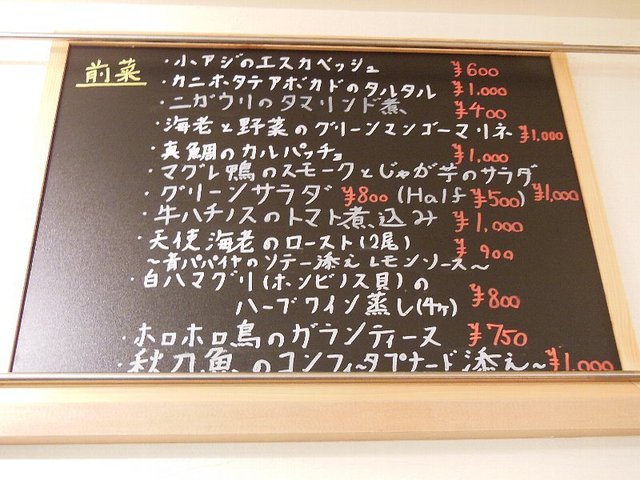 前菜
・小アジのエスカベッシュ ¥600
・カニホタテアボカドのタルタル ¥1,000
・ニガウリのタマリンド煮 ¥400
・海老と野菜のグリーンマンゴーマリネ ¥1,000
・真鯛のカルパッチョ ¥1,000
・マグレ鴨のスモークとじゃが芋のサラダ ¥1,000
・グリーンサラダ ¥800 (Half ¥500)
・牛ハチノスのトマト煮込み ¥1,000
・天使海老のロースト(2尾) ¥900
〜青パパイヤのソテー添え レモンソース〜
・白ハマグリ(ホンビノス貝)の
ハーブワイン蒸し(4ヶ) ¥800
・ホロホロ鳥のガランティーヌ ¥750
・秋刀魚のコンフィ〜タプナード添え〜 ¥1,000